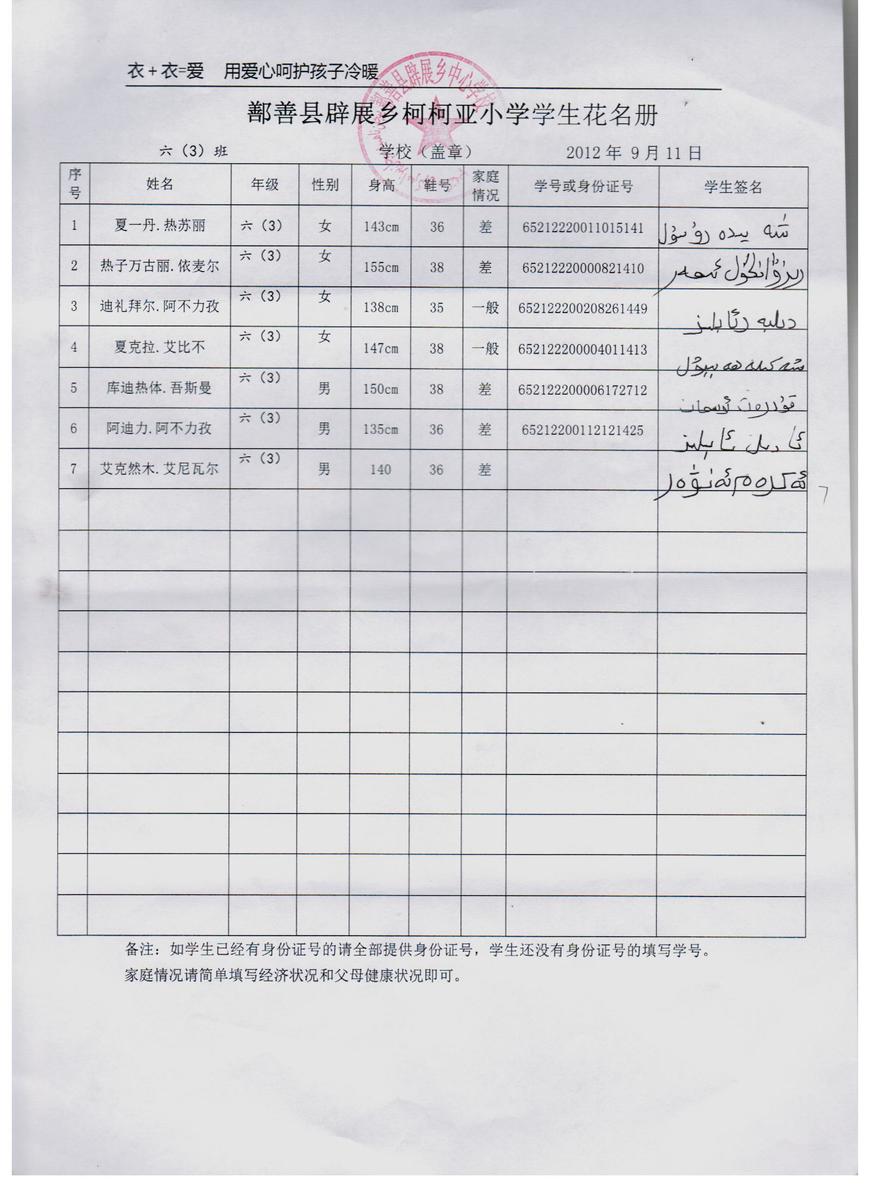 衣+衣=爱 用爱心呵护孩子冷暖
鄯善县辟展乡中心学校
鄯善县辟展乡柯柯亚小学学生花名册
六（3）班 学校（盖章） 2012 年 9 月 11 日
序号 姓名 年级 性别 身高 鞋号 家庭情况 学号或身份证号 学生签名
1 夏一丹.热苏丽 六（3） 女 143cm 36 差 65212220011015141
2 热子万古丽.依麦尔 六（3） 女 155cm 38 差 65212220000821410
3 迪礼拜尔.阿不力孜 六（3） 女 138cm 35 一般 652122200208261449 دىلبە رئابلىز
4 夏克拉.艾比不 六（3） 女 147cm 38 一般 652122200004011413
5 库迪热体.吾斯曼 六（3） 男 150cm 38 差 652122200006172712
6 阿迪力.阿不力孜 六（3） 男 135cm 36 差 65212200112121425 ئادىل ئابلىز
7 艾克然木.艾尼瓦尔 六（3） 男 140 36 差 ئەكرەم ئەنۋەر
7
备注：如学生已经有身份证号的请全部提供身份证号，学生还没有身份证号的填写学号。
家庭情况请简单填写经济状况和父母健康状况即可。